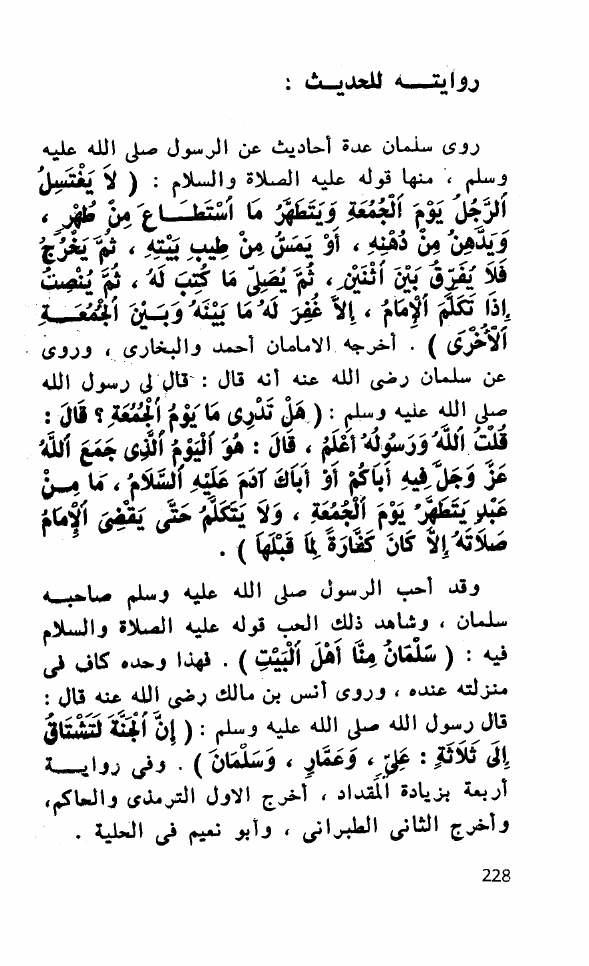 روايتـــه للحديـث :
روى سلمان عدة أحاديث عن الرسول صلى الله عليه
وسلم ، منها قوله عليه الصلاة والسلام : ( لاَ يَغْتَسِلُ
اَلرَّجُلُ يَوْمَ اَلْجُمُعَةِ وَيَتَطَهَّرُ مَا اُسْتَطَـــاعَ مِنْ طُهْرٍ ،
وَيَدَّهِنُ مِنْ دُهْنِهِ ، أَوْ يَمَسُّ مِنْ طِيبِ بَيْتِهِ ، ثُمَّ يَخْرُجُ
فَلاَ يُفَرِّقُ بَيْنَ اَثْنَيْنِ ، ثُمَّ يُصَلِّي مَا كُتِبَ لَهُ ، ثُمَّ يُنْصِتُ
إِذَا تَكَلَّمَ اُلْإِمَامُ ، إِلاَّ غُفِرَ لَهُ مَا بَيْنَهُ وَبَــيْنَ اَلْجُمُعَـــةِ
اَلْأُخْرَى ) . أخرجه الامامان أحمد والبخارى ، وروى
عن سلمان رضى الله عنه أنه قال : قال لى رسول الله
صلى الله عليه وسلم : ( هَلْ تَدْرِى مَا يَوْمُ اُلْجُمُعَةِ ؟ قَالَ :
قُلْتُ اَللهُ وَرَسُولُهُ أَعْلَمُ ، قَالَ : هُوَ اَلْيَوْمُ اُلَّذِى جَمَعَ اَللهُ
عَزَّ وَجَلَّ فِيهِ أَبَاكُمْ أَوْ أَبَاكَ آدَمَ عَلَيْهِ اُلسَّلاَمُ ، مَا مِــنْ
عَبْدٍ يَتَطَهَّرُ يَوْمَ اَلْجُمُعَةِ ، وَلاَ يَتَكَلَّمُ حَتَّى يَقْضِىَ اَلْإِمَامُ
صَلاَتَهُ إِلاَّ كَانَ كَفَّارَةً لِمَا قَبْلَهَا ) .
وقد أحب الرسول صلى الله عليه وسلم صاحبــه
سلمان ، وشاهد ذلك الحب قوله عليه الصلاة والسلام
فيه : ( سَلْمَانُ مِنَّا أَهْلَ اُلْبَيْتِ ) . فهذا وحده كاف فى
منزلته عنده ، وروى أنس بن مالك رضى الله عنه قال :
قال رسول الله صلى الله عليه وسلم : ( إِنَّ اُلْجَنَّةَ لَتَشْتَاقُ
إِلَى ثَلاَثَةٍ : عَلِيٍّ ، وَعَمَّارٍ ، وَسَلْمَانَ ) . وفى روايـــة
أربعة بزيادة اُلمقداد ، أخرج الاول الترمذى والحاكم،
وأخرج الثانى الطبرانى ، وأبو نعيم فى الحلية .
228